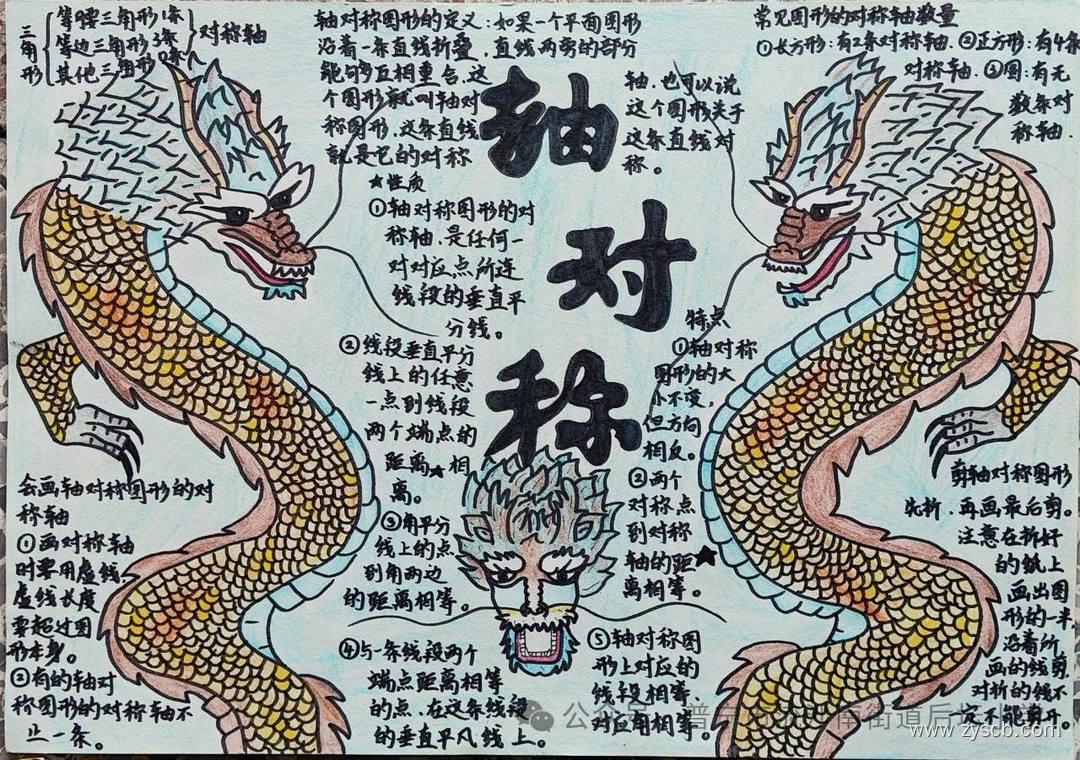 三角形
等腰三角形1条
等边三角形3条
其他三角形0条
对称轴
轴对称图形的定义:如果一个平面图形
沿着一条直线折叠,直线两旁的部分
能够互相重合,这
个图形就叫轴对
称图形,这条直线
就是它的对称
轴,也可以说
这个图形关于
这条直线对
称。
常见图形的对称轴数量
①长方形:有2条对称轴.②正方形:有4条
对称轴.③圆:有无
数条对
称轴.
轴
对
称
★性质
①轴对称图形的对
称轴,是任何一
对对应点所连
线段的垂直平
分线。
②线段垂直平分
线上的任意
一点到线段
两个端点的
距离★相
离。
③角平分
线上的点
到角两边
的距离相等。
④与一条线段两个
端点距离相等
的点,在这条线段
的垂直平凡线上。
⑤轴对称图
形上对应的
线段相等,
对应角相等。
特点
①轴对称
图形的大
小不变,
但方向
相反。
②两个
对称点
到对称
轴的距★
离相等。
会画轴对称图形的对
称轴
①画对称轴
时要用虚线,
虚线长度
要超过图
形本身。
②有的轴对
称图形的对称轴不
止一条。
剪轴对称图形
先折,再画最后剪。
注意在折好
的纸上
画出图
形的一半,
沿着所
画的线剪
对折的线不
一定不能剪开。
公众号
南街道后
www.zyscb.com